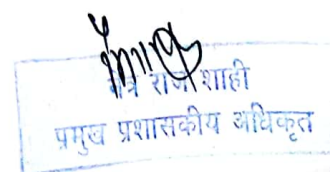 शाही
प्रमुख प्रशासकीय अधिकृत